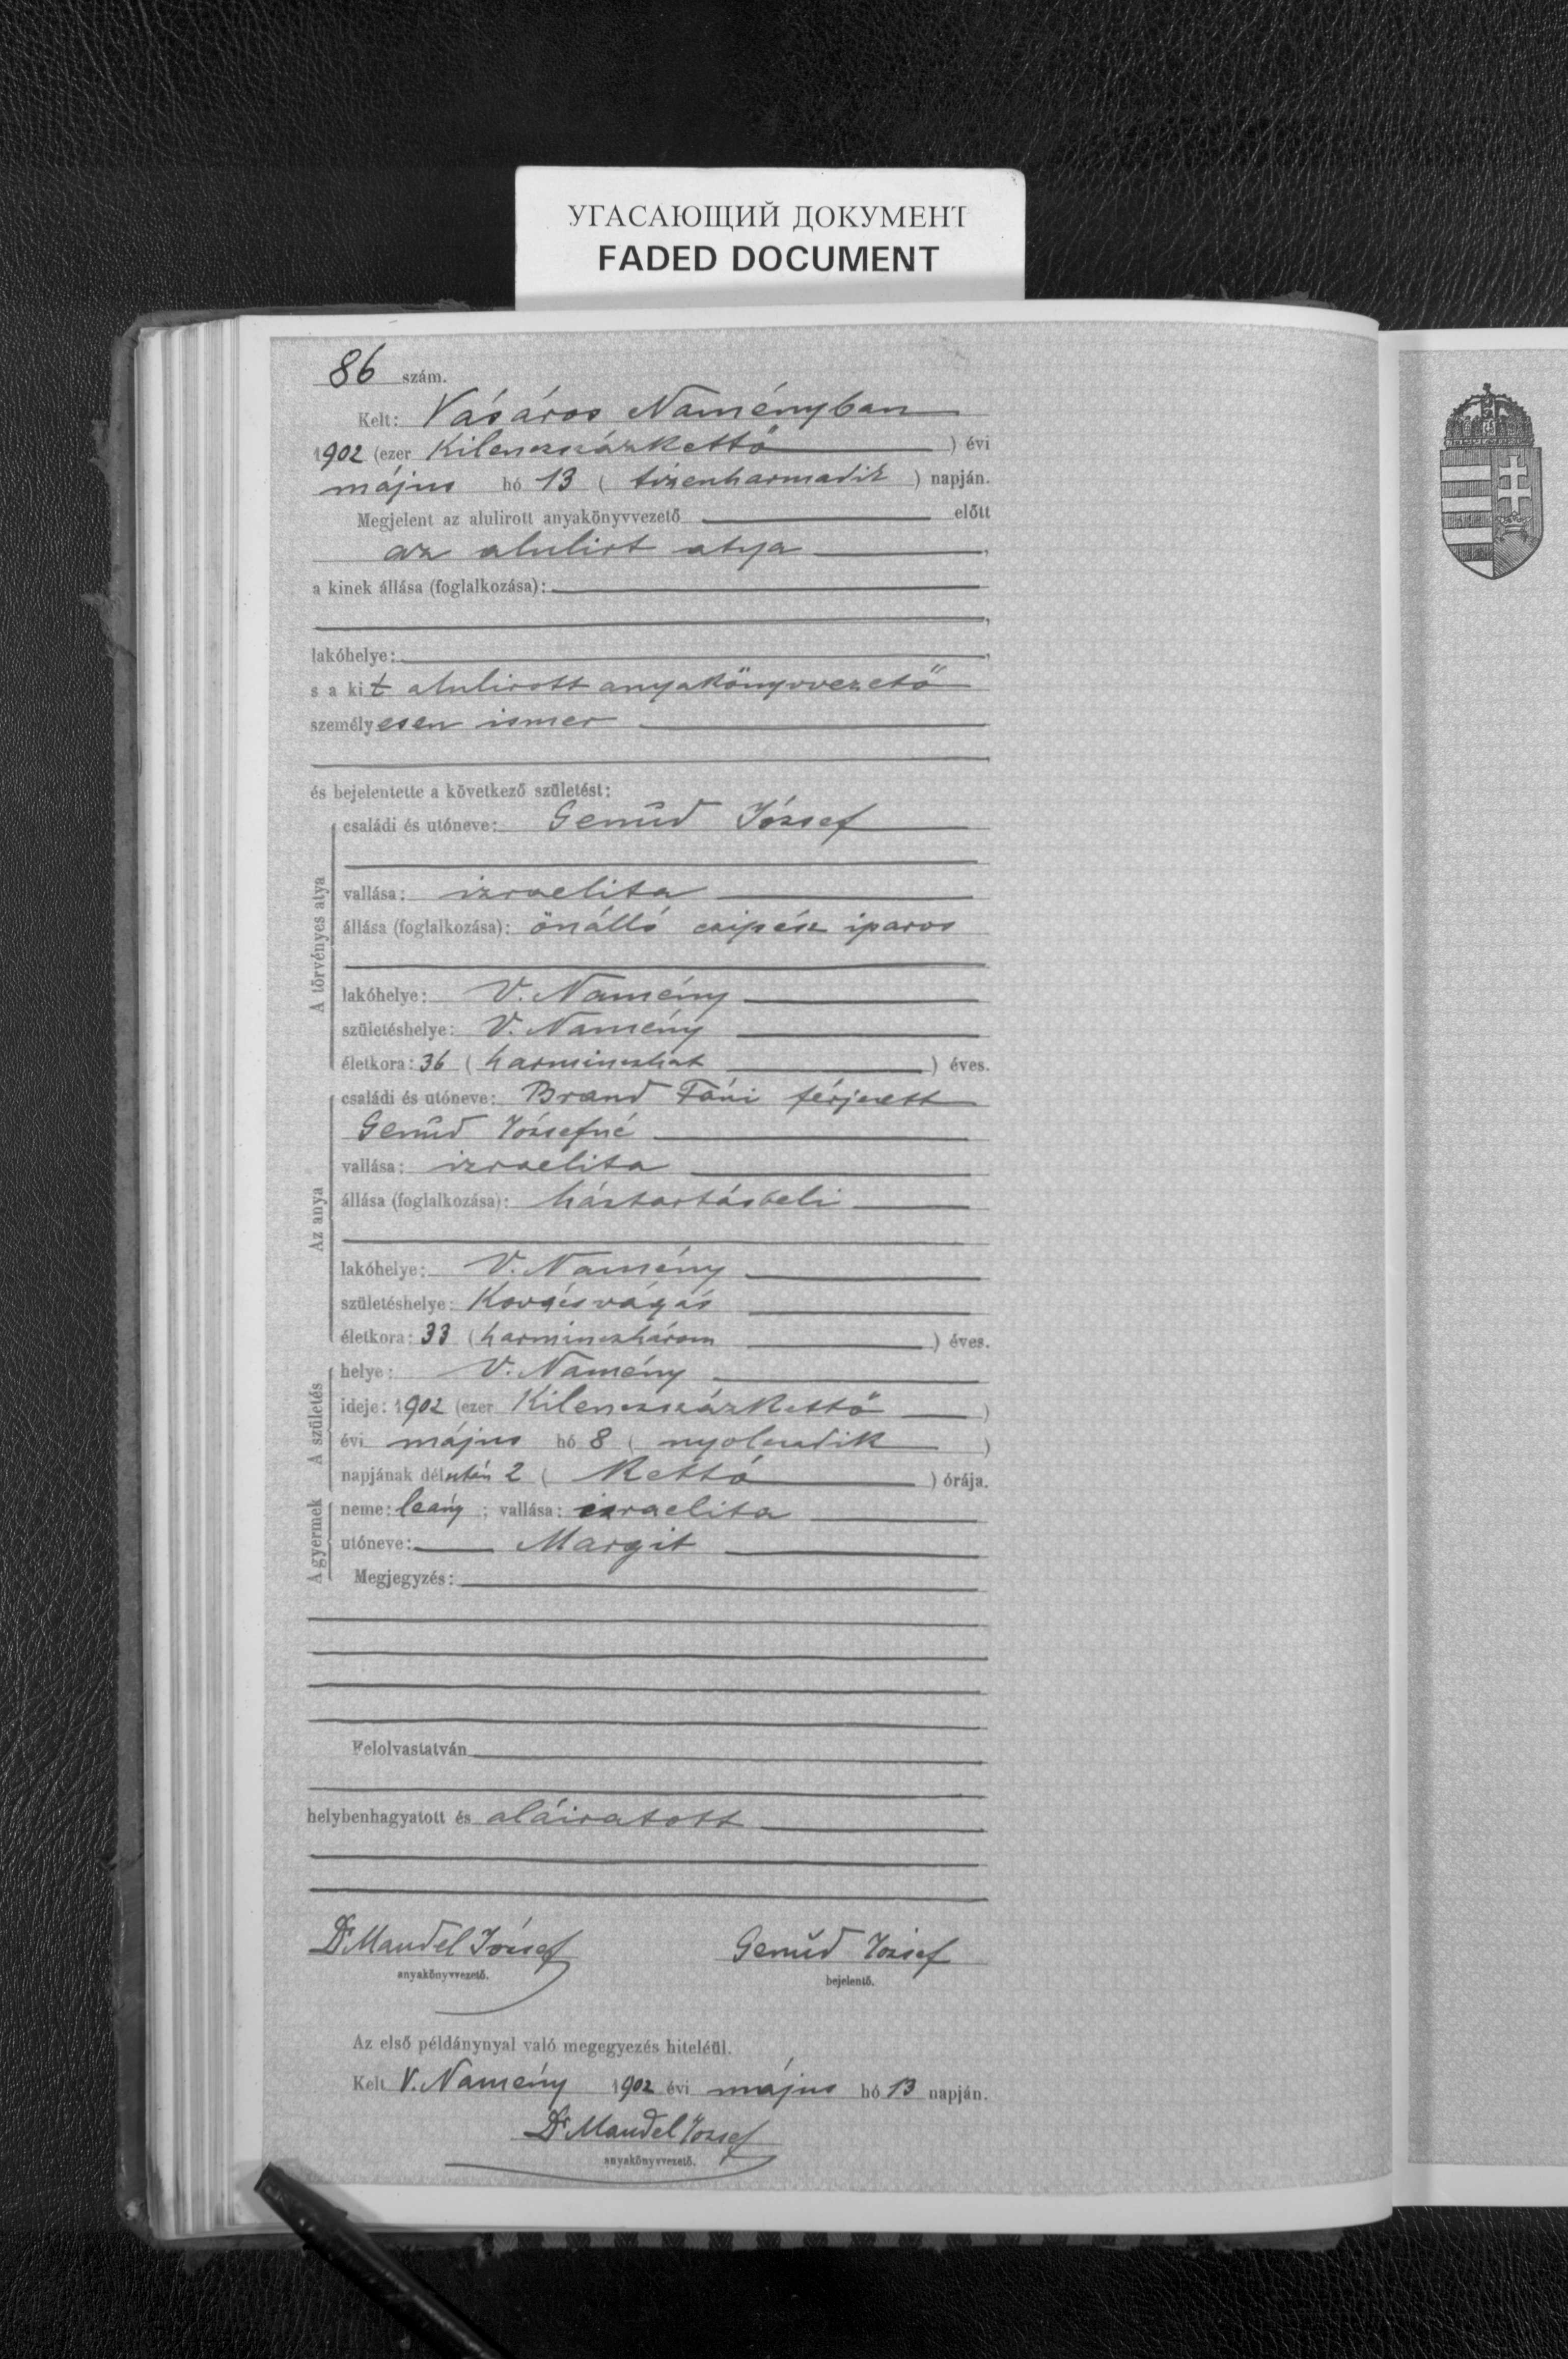 УГАСАЮЩИЙ ДОКУМЕНТ
FADED DOCUMENT
86 szám.
Kelt: Vásáros Naményban
1902 (ezer Kilenczszázkettő ) évi
május hó 13 ( tizenharmadik ) napján.
Megjelent az alulirott anyakönyvvezető előtt
az alulirt atya ,
a kinek állása (foglalkozása):
,
lakóhelye: ,
s a kit alulirott anyakönyvvezető
személyesen ismer
és bejelentette a következő születést:
A törvényes atya
családi és utóneve: Genŭd József
vallása: izraelita
állása (foglalkozása): önálló czipész iparos
lakóhelye: V. Namény
születéshelye: V. Namény
életkora: 36 ( harminczhat ) éves.
Az anya
családi és utóneve: Brand Fáni férjezett
Genŭd Józsefné
vallása: izraelita
állása (foglalkozása): háztartásbeli
lakóhelye: V. Namény
születéshelye: Kovácsvágás
életkora: 33 ( harminczhárom ) éves.
A születés
helye: V. Namény
ideje: 1902 (ezer Kilenczszázkettő )
évi május hó 8 ( nyolczadik )
napjának délután 2 ( Kettő ) órája.
A gyermek
neme: leány ; vallása: izraelita
utóneve: Margit
Megjegyzés:
Felolvastatván
helybenhagyatott és aláiratott
Dr Mandel József Genŭd József
anyakönyvvezető. bejelentő.
Az első példánynyal való megegyezés hiteléül.
Kelt V. Namény 1902 évi május hó 13 napján.
Dr Mandel József
anyakönyvvezető.